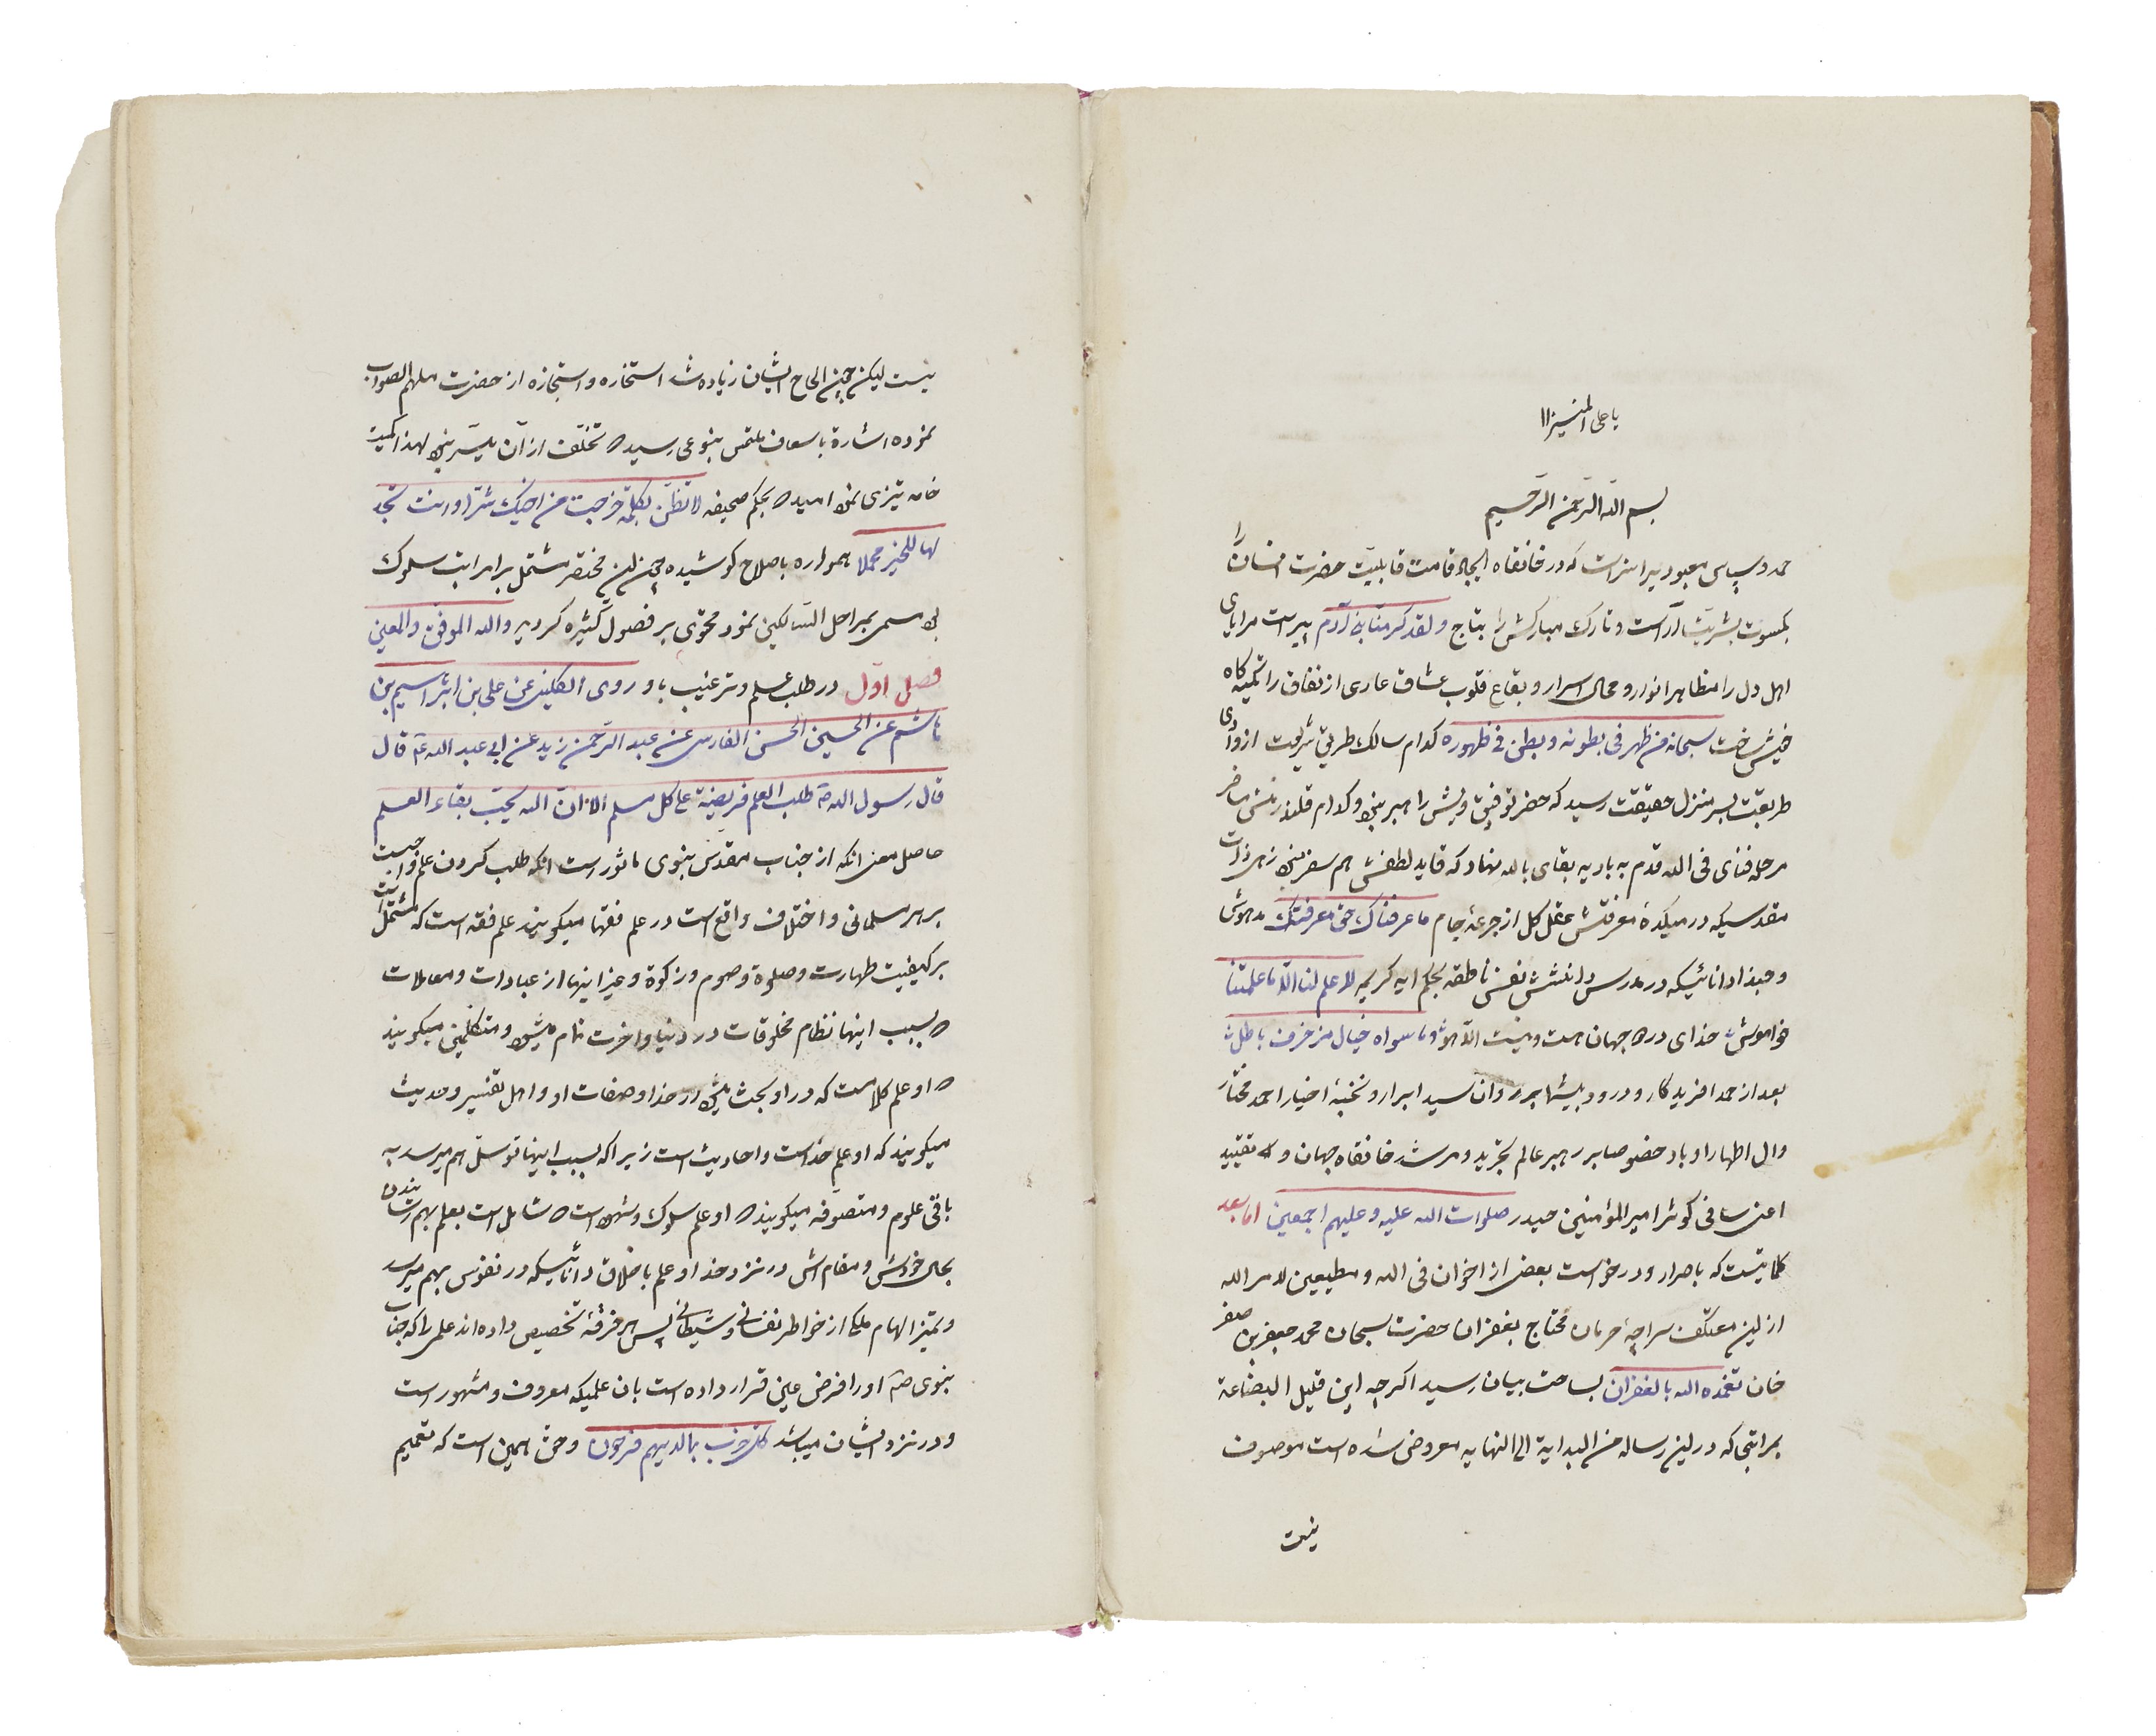 بسم الله الرحمن الرحیم
حمد و سپاس معبودیرا سزاست که در خانقاه ایجاد قامت قابلیت حضرت انسان را
بکسوت بشریت آراست و تارک مبارکش را بتاج ولقد کرمنا بنی آدم پیراست مرایای
اهل دل را مظاهر انوار و محال اسرار و بقاع قلوب عشاق عاری از نفاق را تکیه گاه
خویش ساخت سبحانه من ظهر فی بطونه و بطن فی ظهوره کدام سالک طریق شریعت از وادی
طریقت بسر منزل حقیقت رسید که خضر توفیقش را هبر نبود و کدام قلندر منش
مرحله فنای فی الله قدم به بادیه بقای بالله نهاد که قاید لطفش هم سفر نبود زهی ذات
مقدسیکه در میکدهٔ معرفتش عقل کل از جرعهٔ جام ما عرفناک حق معرفتک مدهوش
و حبذا دانائیکه در مدرس دانشش نفس ناطقه بحکم ایه کریمه لا علم لنا الا ما علمتنا
خاموش خدای در دو جهان هست و نیست الا هو وما سواه خیال مزخرف باطل
بعد از حمد افریدکار و درود بیشمار بر روان سید ابرار و نخبهٔ اخیار احمد مختار
وال اطهار او باد خصوصا بر رهبر عالم تجرید و مرشد خانقاه جهان تقیید
اعنی ساقی کوثر امیر المؤمنین حیدر صلوات الله علیه وعلیهم اجمعین اما بعد
کلماتیست که باصرار و درخواست بعضی از اخوان فی الله و مطیعین لامر الله
از این معتکف سراچهٔ حرمان محتاج بغفران حضرت سبحان محمد جعفر بن صفر
خان تغمده الله بالغفران بساحت بیان رسید اکرچه این قلیل البضاعة
بمراتبی که در این رساله من البدایة الی النهایه معروض شده است موصوف
نیست
نیست لیکن چون الحاح ایشان زیاده شد استخاره و استجازه از حضرت ملهم الصواب
نموده اشارة باسعاف ملتمس بنوعی رسید که تخلف از آن میسر نبود لهذا کمیت
خامه تیزی نمود امید که بحکم صحیفه لا تظنن بکلمة خرجت من اخیک شرا وانت تجد
لها للخیر محملا همواره باصلاح کوشیده چون این مختصر مشتمل بر مراتب سلوک
بود مسمی بمراحل السالکین نمود محتوی بر فصول کثیره کردید والله الموفق والمعین
فصل اول در طلب علم و ترغیب باو روی الکلینی عن علی بن ابراهیم بن
هاشم عن الحسین الحسن الفارسی عن عبد الرحمن زید عن ابی عبد الله ع قال
قال رسول الله ص طلب العلم فریضة علی کل مسلم الا ان الله یحب بغاة العلم
حاصل معنی انکه از جناب مقدس نبوی ماثور است انکه طلب کردن علم واجبست
بر هر مسلمانی و اختلاف واقع است در علم فقها میکویند علم فقه است که مشتمل است
بر کیفیت طهارت و صلوة و صوم و زکوة و غیر اینها از عبادات و معاملات
که بسبب اینها نظام مخلوقات در دنیا و اخرت تمام میشود و متکلمین میکویند
که او علم کلامست که در او بحث میشود از خدا و صفات او و اهل تفسیر و حدیث
میکویند که او علم خداست و احادیث است زیرا که بسبب اینها توسل هم میرسد به
باقی علوم و متصوفه میکویند که او علم سلوک و شهود است که شامل است بعلم بهم رسانیدن بنده
بحال خودش و مقامش در نزد خدا و علم باخلاق دانائیکه در نفوس بهم میرسد
و تمیز الهام ملکی از خواطر نفسانی و شیطانی پس هر فرقهٔ تخصیص داده اند علمی را که جناب
نبوی ص او را فرض عین قرار داده است بان علمیکه معروف و مشهور است
و در نزد ایشان میباشد کل حزب بما لدیهم فرحون و حق همین است که تعمیم